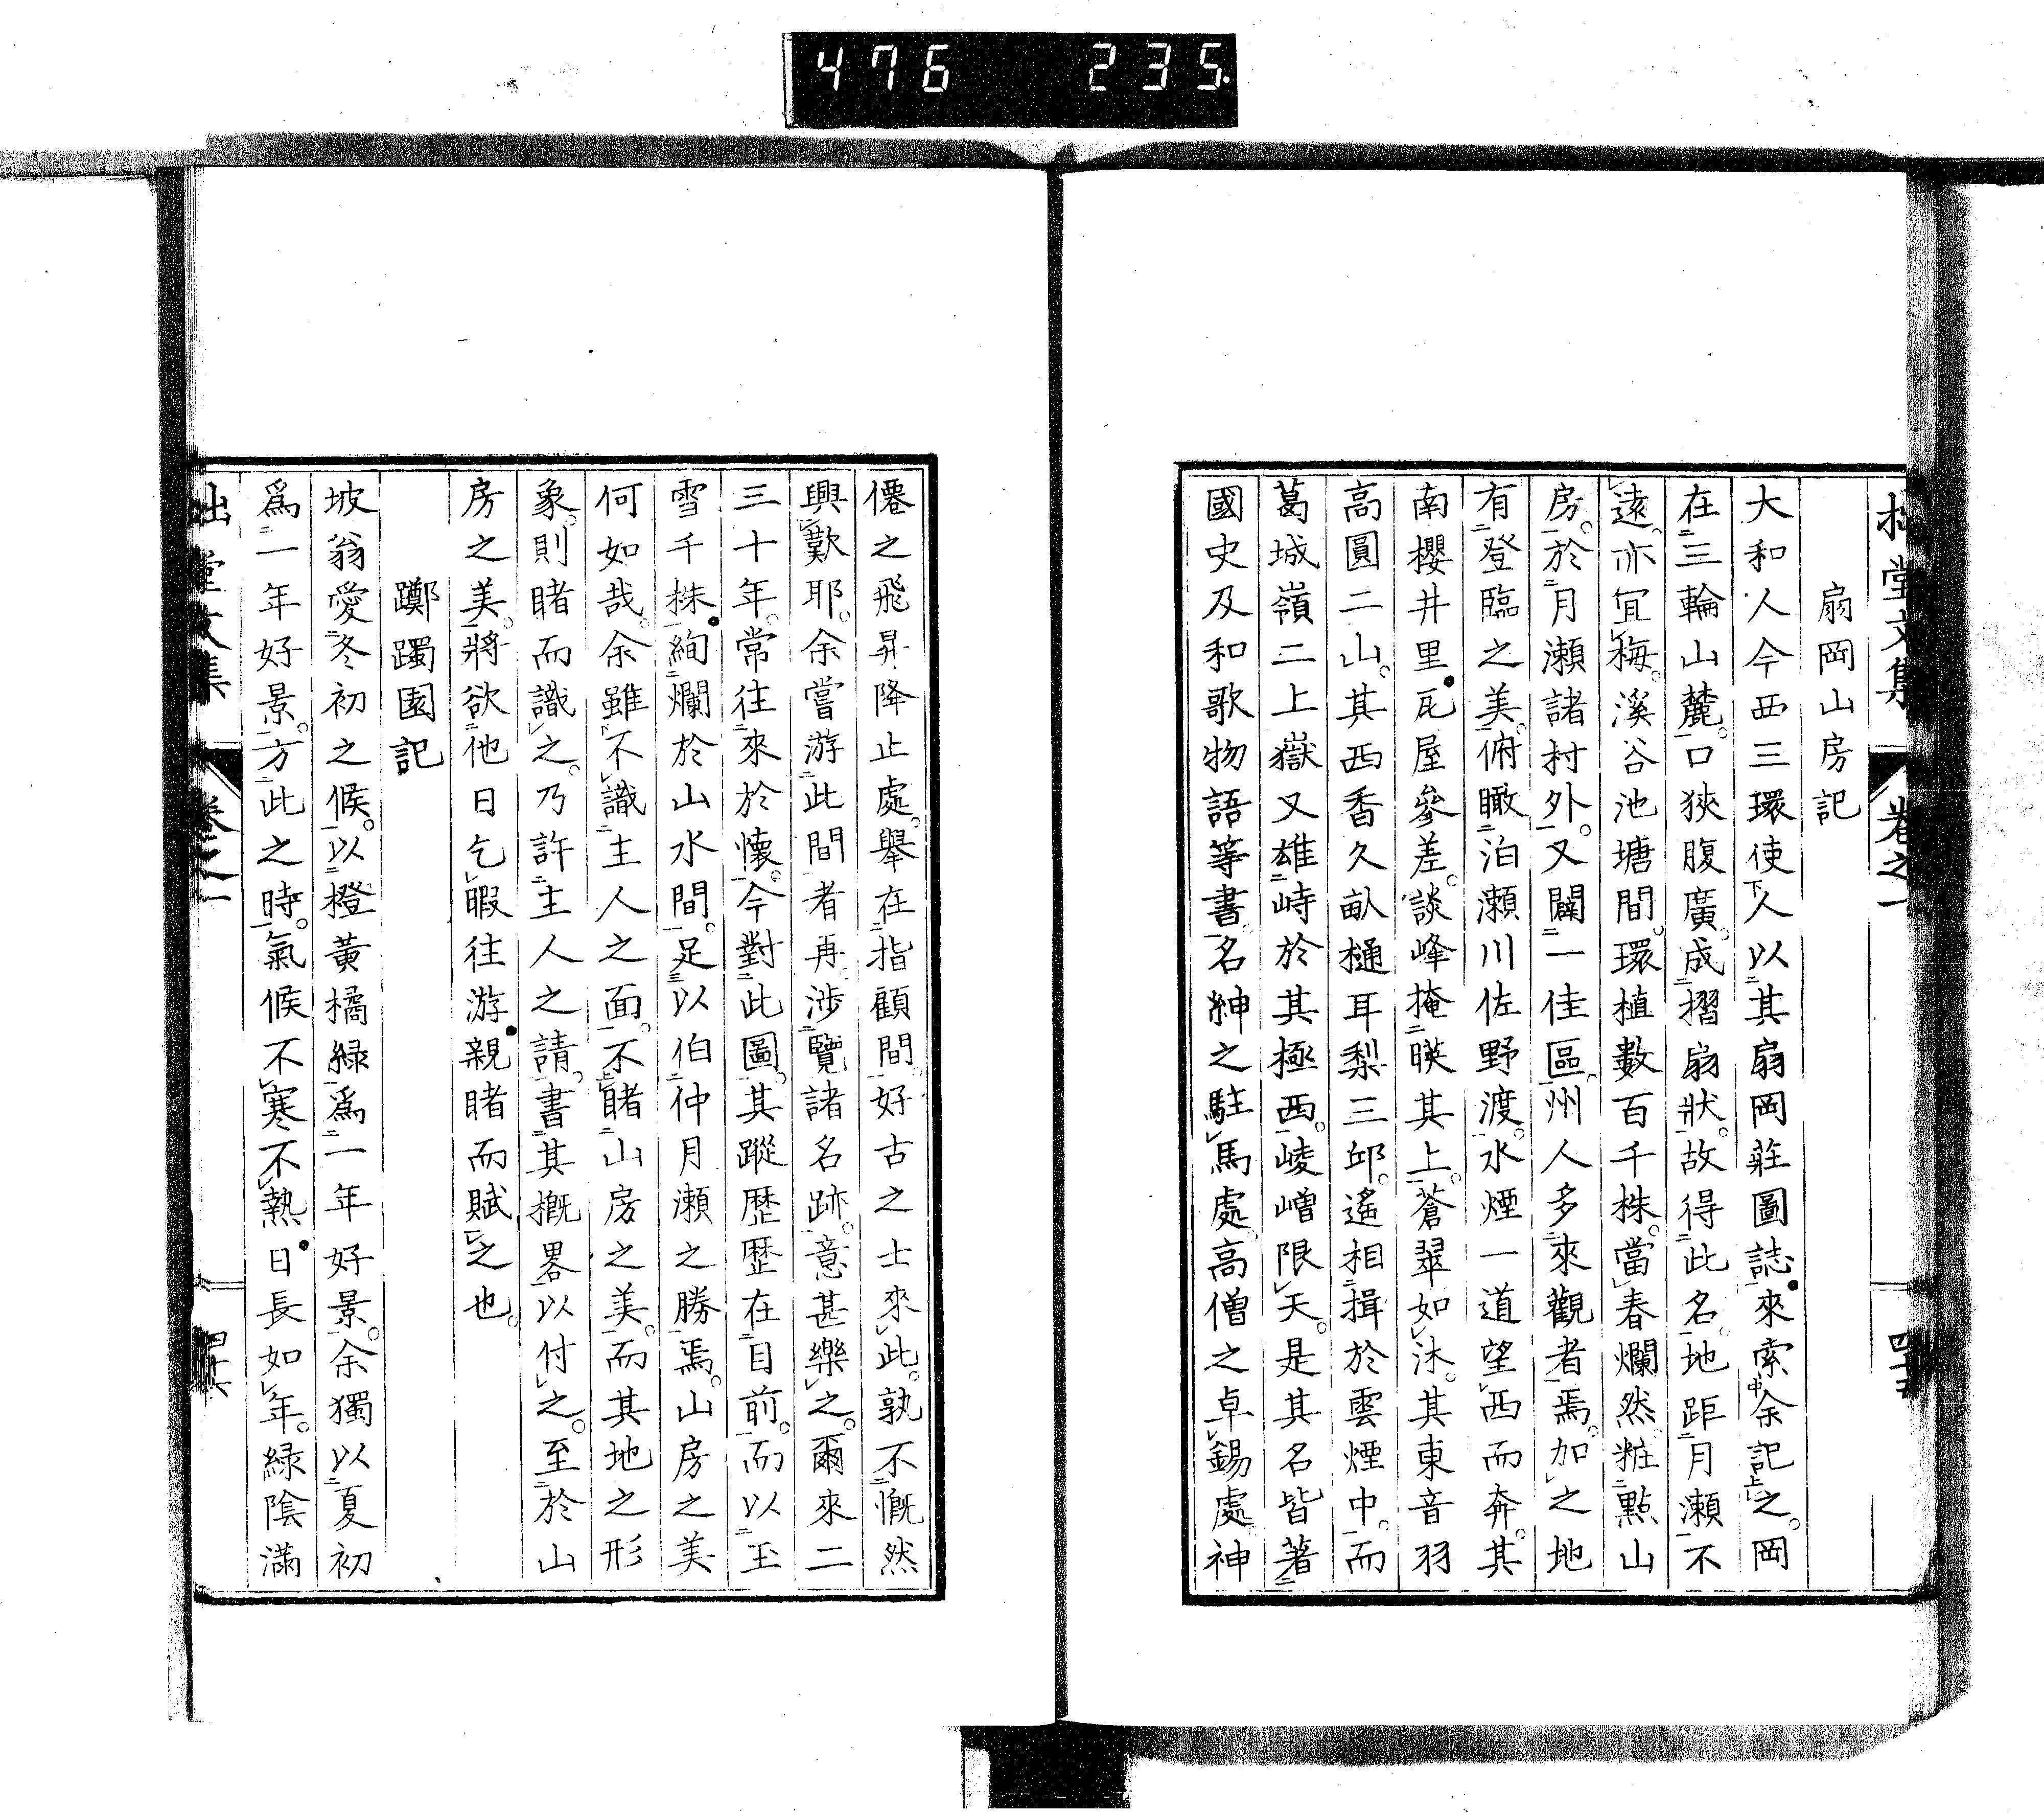 476 235.
扇岡山房記
大和人今西三環使人以其扇岡莊圖誌來索余記之。岡
在三輪山麓。口狹腹廣。成摺扇狀。故得此名。地距月瀬不
遠。亦宜梅。溪谷池塘間。環植數百千株。當春爛然粧點山
房。於月瀬諸村外。又闢一佳區。州人多來觀者焉。加之地
有登臨之美。俯瞰泊瀬川佐野渡。水煙一道望西而奔。其
南櫻井里。瓦屋參差。談峰掩暎其上。蒼翠如沐。其東音羽
高圓二山。其西香久畝樋耳梨三邱。遙相揖於雲煙中。而
葛城嶺二上嶽又雄峙於其極西。崚嶒限天。是其名皆著
國史及和歌物語等書。名紳之駐馬處。高僧之卓錫處。神
僊之飛昇降止處。舉在指顧間。好古之士來此。孰不慨然
興歎耶。余嘗游此間者再。渉覽諸名跡。意甚樂之。爾來二
三十年。常往來於懷。今對此圖。其蹤歷歷在目前。而以玉
雪千株。絢爛於山水間。足以伯仲月瀬之勝焉。山房之美
何如哉。余雖不識主人之面。不睹山房之美。而其地之形
象。則睹而識之。乃許主人之請。書其概畧以付之。至於山
房之美。將欲他日乞暇往游。親睹而賦之也。
躑躅園記
坡翁愛冬初之候。以橙黃橘緑爲一年好景。余獨以夏初
爲一年好景。方此之時。氣候不寒不熱。日長如年。緑陰滿
拙堂文集 卷之一